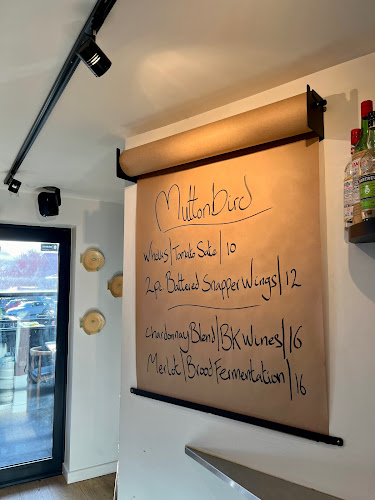 Muttonbird
Whelks | Tomato Sate | 10
2pc Battered Snapper Wings | 12
Chardonnay Blend | BK Wines | 16
Merlot | Brood Fermentation | 16